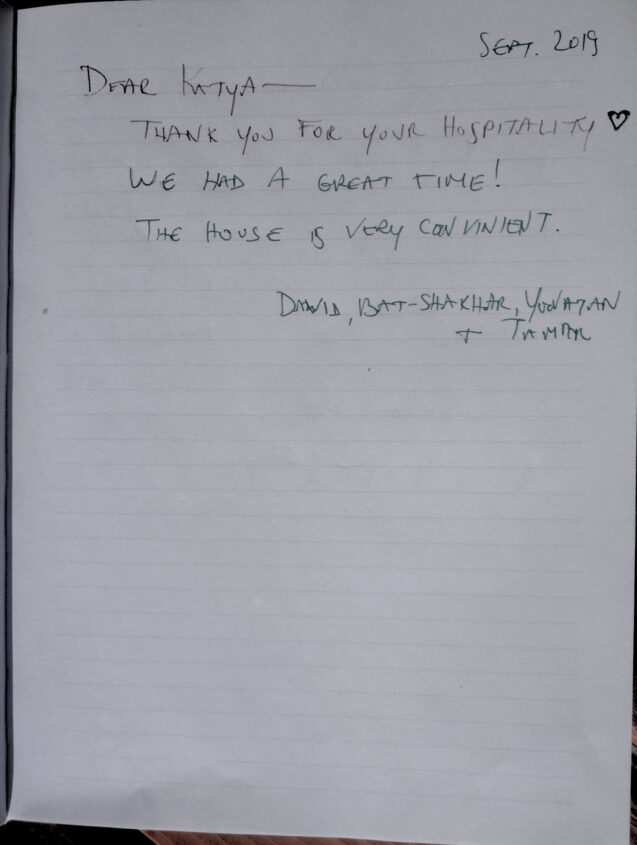 SEPT. 2019
DEAR KATYA —
THANK YOU FOR YOUR HOSPITALITY ♡
WE HAD A GREAT TIME!
THE HOUSE IS VERY CONVINIENT.
DAVID, BAT-SHAKHAR, YONATAN
+ TAMAR